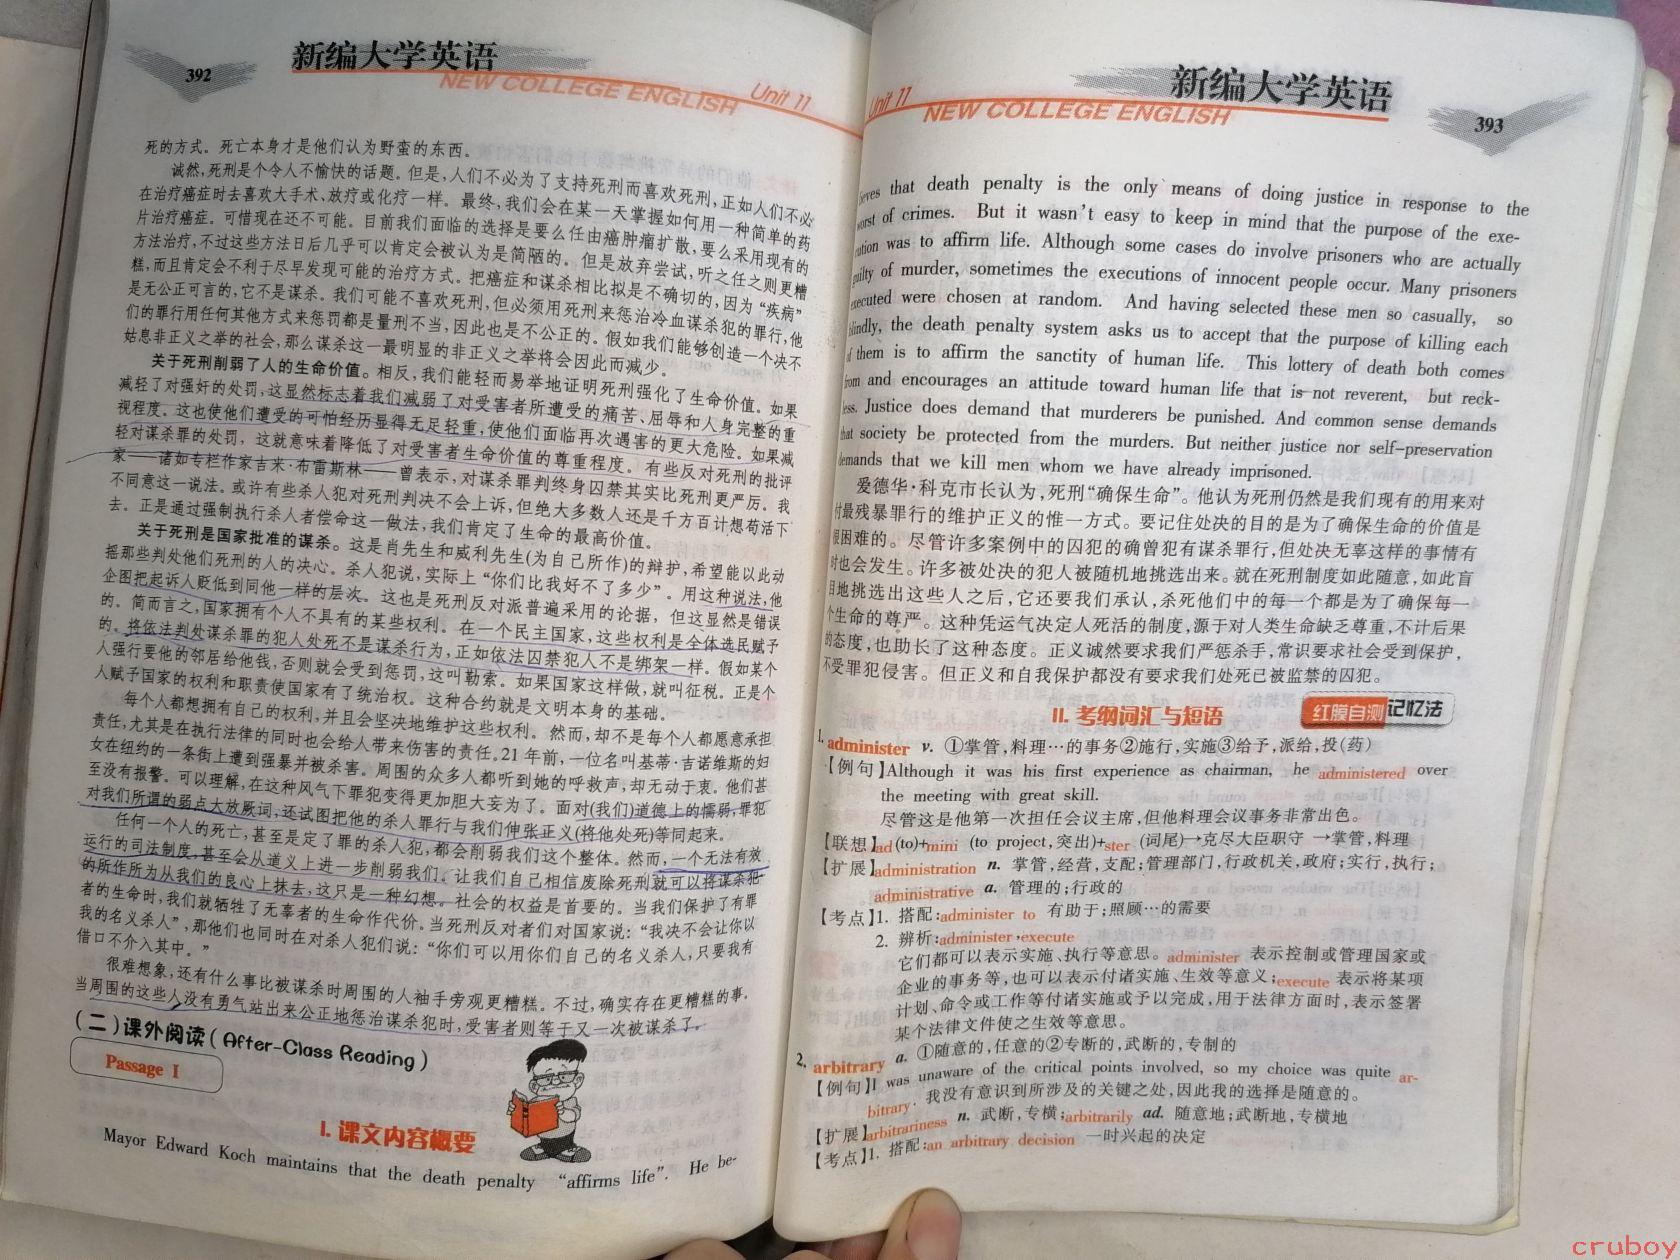 392
新编大学英语
NEW COLLEGE ENGLISH
Unit 11
死的方式。死亡本身才是他们认为野蛮的东西。
诚然,死刑是个令人不愉快的话题。但是,人们不必为了支持死刑而喜欢死刑,正如人们不必
在治疗癌症时去喜欢大手术、放疗或化疗一样。最终,我们会在某一天掌握如何用一种简单的药
片治疗癌症。可惜现在还不可能。目前我们面临的选择是要么任由癌肿瘤扩散,要么采用现有的
方法治疗,不过这些方法日后几乎可以肯定会被认为是简陋的。但是放弃尝试,听之任之则更糟
糕,而且肯定会不利于尽早发现可能的治疗方式。把癌症和谋杀相比拟是不确切的,因为“疾病”
是无公正可言的,它不是谋杀。我们可能不喜欢死刑,但必须用死刑来惩治冷血谋杀犯的罪行,他
们的罪行用任何其他方式来惩罚都是量刑不当,因此也是不公正的。假如我们能够创造一个决不
姑息非正义之举的社会,那么谋杀这一最明显的非正义之举将会因此而减少。
关于死刑削弱了人的生命价值。相反,我们能轻而易举地证明死刑强化了生命价值。如果
减轻了对强奸的处罚,这显然标志着我们减弱了对受害者所遭受的痛苦、屈辱和人身完整的重
视程度。这也使他们遭受的可怕经历显得无足轻重,使他们面临再次遇害的更大危险。如果减
轻对谋杀罪的处罚,这就意味着降低了对受害者生命价值的尊重程度。有些反对死刑的批评
家——诸如专栏作家吉米·布雷斯林——曾表示,对谋杀罪判终身囚禁其实比死刑更严厉。我
不同意这一说法。或许有些杀人犯对死刑判决不会上诉,但绝大多数人还是千方百计想苟活下
去。正是通过强制执行杀人者偿命这一做法,我们肯定了生命的最高价值。
关于死刑是国家批准的谋杀。这是肖先生和威利先生(为自己所作)的辩护,希望能以此动
摇那些判处他们死刑的人的决心。杀人犯说,实际上“你们比我好不了多少”。用这种说法,他
企图把起诉人贬低到同他一样的层次。这也是死刑反对派普遍采用的论据,但这显然是错误
的。简而言之,国家拥有个人不具有的某些权利。在一个民主国家,这些权利是全体选民赋予
的。将依法判处谋杀罪的犯人处死不是谋杀行为,正如依法囚禁犯人不是绑架一样。假如某个
人强行要他的邻居给他钱,否则就会受到惩罚,这叫勒索。如果国家这样做,就叫征税。正是个
人赋予国家的权利和职责使国家有了统治权。这种合约就是文明本身的基础。
每个人都想拥有自己的权利,并且会坚决地维护这些权利。然而,却不是每个人都愿意承担
责任,尤其是在执行法律的同时也会给人带来伤害的责任。21年前,一位名叫基蒂·吉诺维斯的妇
女在纽约的一条街上遭到强暴并被杀害。周围的众多人都听到她的呼救声,却无动于衷。他们甚
至没有报警。可以理解,在这种风气下罪犯变得更加胆大妄为了。面对(我们)道德上的懦弱,罪犯
对我们所谓的弱点大放厥词,还试图把他的杀人罪行与我们伸张正义(将他处死)等同起来。
任何一个人的死亡,甚至是定了罪的杀人犯,都会削弱我们这个整体。然而,一个无法有效
运行的司法制度,甚至会从道义上进一步削弱我们。让我们自己相信废除死刑就可以将谋杀犯
的所作所为从我们的良心上抹去,这只是一种幻想。社会的权益是首要的。当我们保护了有罪
者的生命时,我们就牺牲了无辜者的生命作代价。当死刑反对者们对国家说:“我决不会让你以
我的名义杀人”,那他们也同时在对杀人犯们说:“你们可以用你们自己的名义杀人,只要我有
借口不介入其中。”
很难想象,还有什么事比被谋杀时周围的人袖手旁观更糟糕。不过,确实存在更糟糕的事,
当周围的这些人没有勇气站出来公正地惩治谋杀犯时,受害者则等于又一次被谋杀了。
(二)课外阅读(After-Class Reading)
Passage I
I. 课文内容概要
Mayor Edward Koch maintains that the death penalty “affirms life”. He be-
Unit 11
新编大学英语
NEW COLLEGE ENGLISH
393
lieves that death penalty is the only means of doing justice in response to the
worst of crimes. But it wasn't easy to keep in mind that the purpose of the exe-
cution was to affirm life. Although some cases do involve prisoners who are actually
guilty of murder, sometimes the executions of innocent people occur. Many prisoners
executed were chosen at random. And having selected these men so casually, so
blindly, the death penalty system asks us to accept that the purpose of killing each
of them is to affirm the sanctity of human life. This lottery of death both comes
from and encourages an attitude toward human life that is not reverent, but reck-
less. Justice does demand that murderers be punished. And common sense demands
that society be protected from the murders. But neither justice nor self-preservation
demands that we kill men whom we have already imprisoned.
爱德华·科克市长认为,死刑“确保生命”。他认为死刑仍然是我们现有的用来对
付最残暴罪行的维护正义的惟一方式。要记住处决的目的是为了确保生命的价值是
很困难的。尽管许多案例中的囚犯的确曾犯有谋杀罪行,但处决无辜这样的事情有
时也会发生。许多被处决的犯人被随机地挑选出来。就在死刑制度如此随意,如此盲
目地挑选出这些人之后,它还要我们承认,杀死他们中的每一个都是为了确保每一
个生命的尊严。这种凭运气决定人死活的制度,源于对人类生命缺乏尊重,不计后果
的态度,也助长了这种态度。正义诚然要求我们严惩杀手,常识要求社会受到保护,
不受罪犯侵害。但正义和自我保护都没有要求我们处死已被监禁的囚犯。
II. 考纲词汇与短语 红膜自测 记忆法
1. administer v. ①掌管,料理…的事务②施行,实施③给予,派给,投(药)
【例句】Although it was his first experience as chairman, he administered over
the meeting with great skill.
尽管这是他第一次担任会议主席,但他料理会议事务非常出色。
【联想】ad(to)+mini (to project,突出)+ster (词尾)→克尽大臣职守 →掌管,料理
【扩展】administration n. 掌管,经营,支配;管理部门,行政机关,政府;实行,执行;
administrative a. 管理的;行政的
【考点】1. 搭配:administer to 有助于;照顾…的需要
2. 辨析:administer,execute
它们都可以表示实施、执行等意思。administer 表示控制或管理国家或
企业的事务等,也可以表示付诸实施、生效等意义;execute 表示将某项
计划、命令或工作等付诸实施或予以完成,用于法律方面时,表示签署
某个法律文件使之生效等意思。
2. arbitrary a. ①随意的,任意的②专断的,武断的,专制的
【例句】I was unaware of the critical points involved, so my choice was quite ar-
bitrary. 我没有意识到所涉及的关键之处,因此我的选择是随意的。
【扩展】arbitrariness n. 武断,专横;arbitrarily ad. 随意地;武断地,专横地
【考点】1. 搭配:an arbitrary decision 一时兴起的决定
cruboy